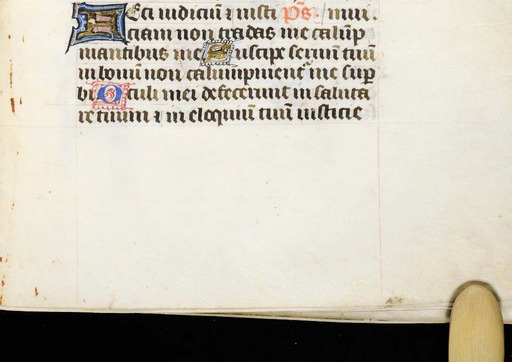 Feci iudiciū ⁊ iusti p̄s. / miii.
ciam non tradas me calūp
niantibus me Suscipe seruū tuū
in bonū non calumpnient᷑ me sup
bi Oculi mei defecerunt in saluta
re tuum ⁊ in eloquiū tuū iusticie